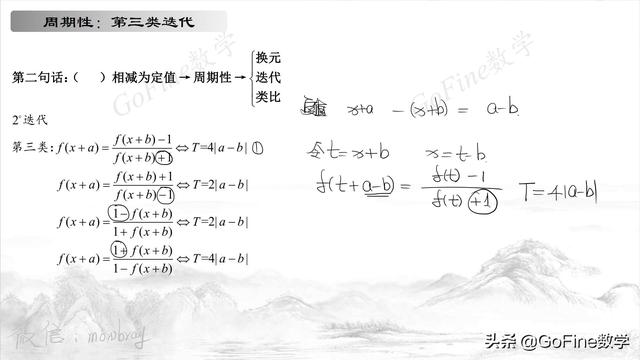 周期性：第三类迭代
GoFine数学
GoFine数学
第二句话:（ ）相减为定值→周期性→
换元
迭代
类比
x+a -(x+b) = a-b
2°迭代
第三类: f(x+a)=\frac{f(x+b)-1}{f(x+b)+1}⇔T=4|a-b| ①
令t=x+b x=t-b
f(x+a)=\frac{f(x+b)+1}{f(x+b)-1}⇔T=2|a-b|
f(t+a-b)=\frac{f(t)-1}{f(t)+1} T=4|a-b|
f(x+a)=\frac{1-f(x+b)}{1+f(x+b)}⇔T=2|a-b|
f(x+a)=\frac{1+f(x+b)}{1-f(x+b)}⇔T=4|a-b|
微信：
头条 @GoFine数学